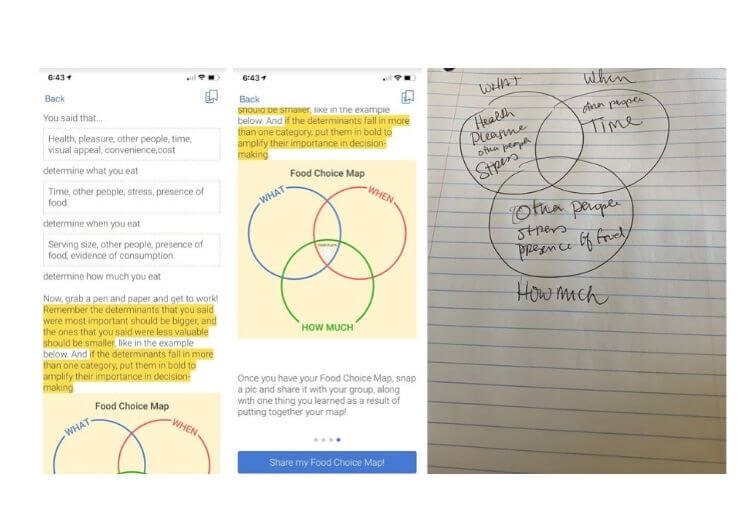 6:43
Back
You said that...
Health, pleasure, other people, time,
visual appeal, convenience,cost
determine what you eat
Time, other people, stress, presence of
food.
determine when you eat
Serving size, other people, presence of
food, evidence of consumption.
determine how much you eat
Now, grab a pen and paper and get to work!
Remember the determinants that you said
were most important should be bigger, and
the ones that you said were less valuable
should be smaller, like in the example
below. And if the determinants fall in more
than one category, put them in bold to
amplify their importance in decision-
making.
Food Choice Map
WHAT
WHEN
6:43
Back
should be smaller, like in the example
below. And if the determinants fall in more
than one category, put them in bold to
amplify their importance in decision-
making.
Food Choice Map
WHAT
WHEN
HOW MUCH
Once you have your Food Choice Map, snap
a pic and share it with your group, along
with one thing you learned as a result of
putting together your map!
Share my Food Choice Map!
WHAT
When
Health
Pleasure
other people
Stress
other people
Time
Other people
stress
presence of food
How much